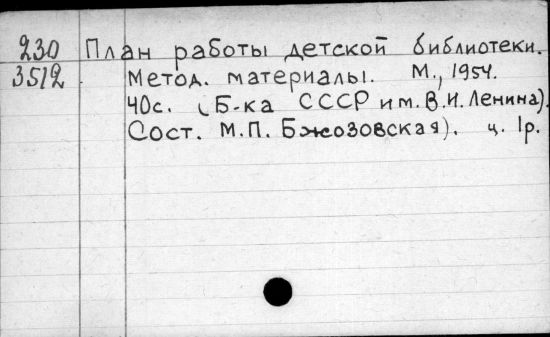 230 План работы детской библиотеки.
3512 Метод. материалы. М., 1954.
40с. (Б-ка СССР им. В.И. Ленина).
Сост. М.П. Бжозовская). ц. 1р.